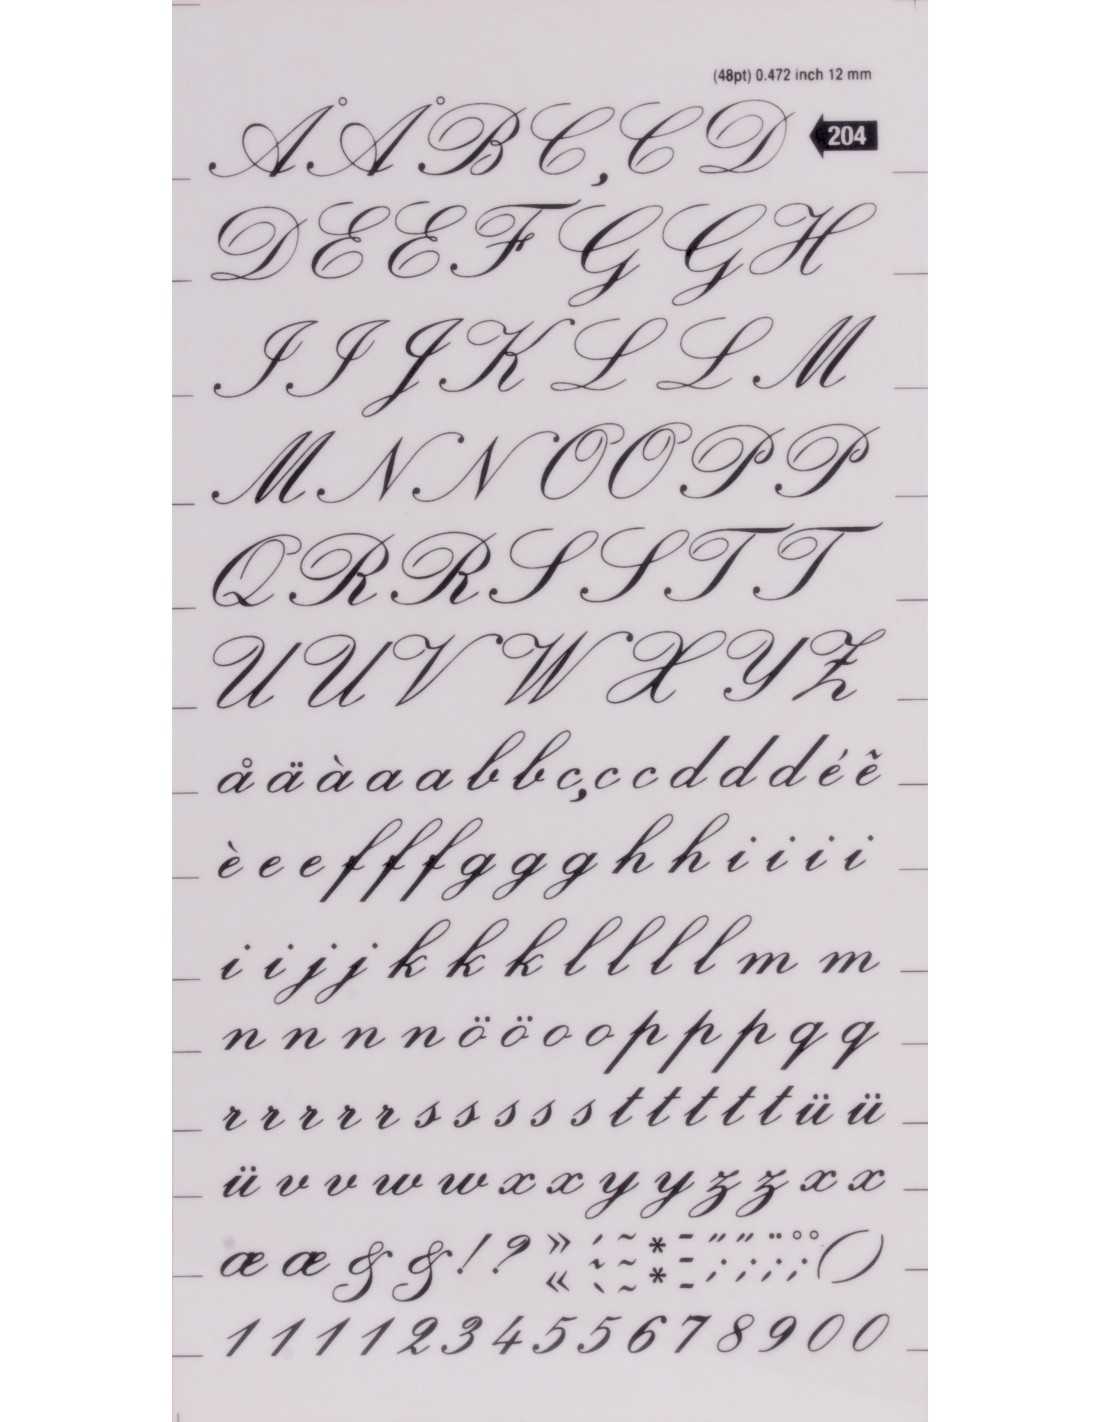 (48pt) 0.472 inch 12 mm
Å Å B C Ç C D
204
D E E F G G H
I I J K L L M
M N N O O P P
Q R R S S T T
U U V W X Y Z
å ä à a a b b ç c c d d d é ẽ
è e e f f f g g g h h i i i i
i i j j k k k l l l l m m
n n n n ö ö o o p p p q q
r r r r r s s s s s t t t t t ü ü
ü v v w w x x y y z z x x
æ æ & & ! ? » « ( )
1 1 1 1 2 3 4 5 5 6 7 8 9 0 0